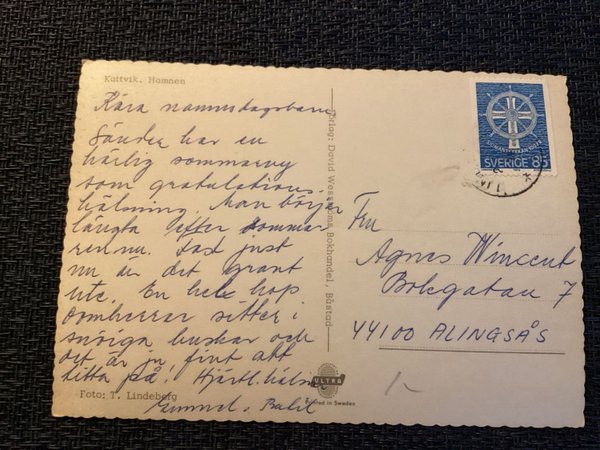 Kattvik. Hamnen
Kära namnsdagsbarn
Sänder här en
härlig sommarvy
som gratulations
hälsning. Man börjar
längta efter sommar
ren nu. Fast just
nu är det grant
ute. En hel hop
domherrar sitter i
snöiga buskar och
det är ju fint att
titta på! Hjärtl. häls
Gunnel, Bertil
Foto: T. Lindeberg
Förlag: David Westströms Bokhandel, Båstad
ULTRA
Printed in Sweden
SVERIGE 85
Fru
Agnes Wincent
Bokgatan 7
44100 ALINGSÅS
1-